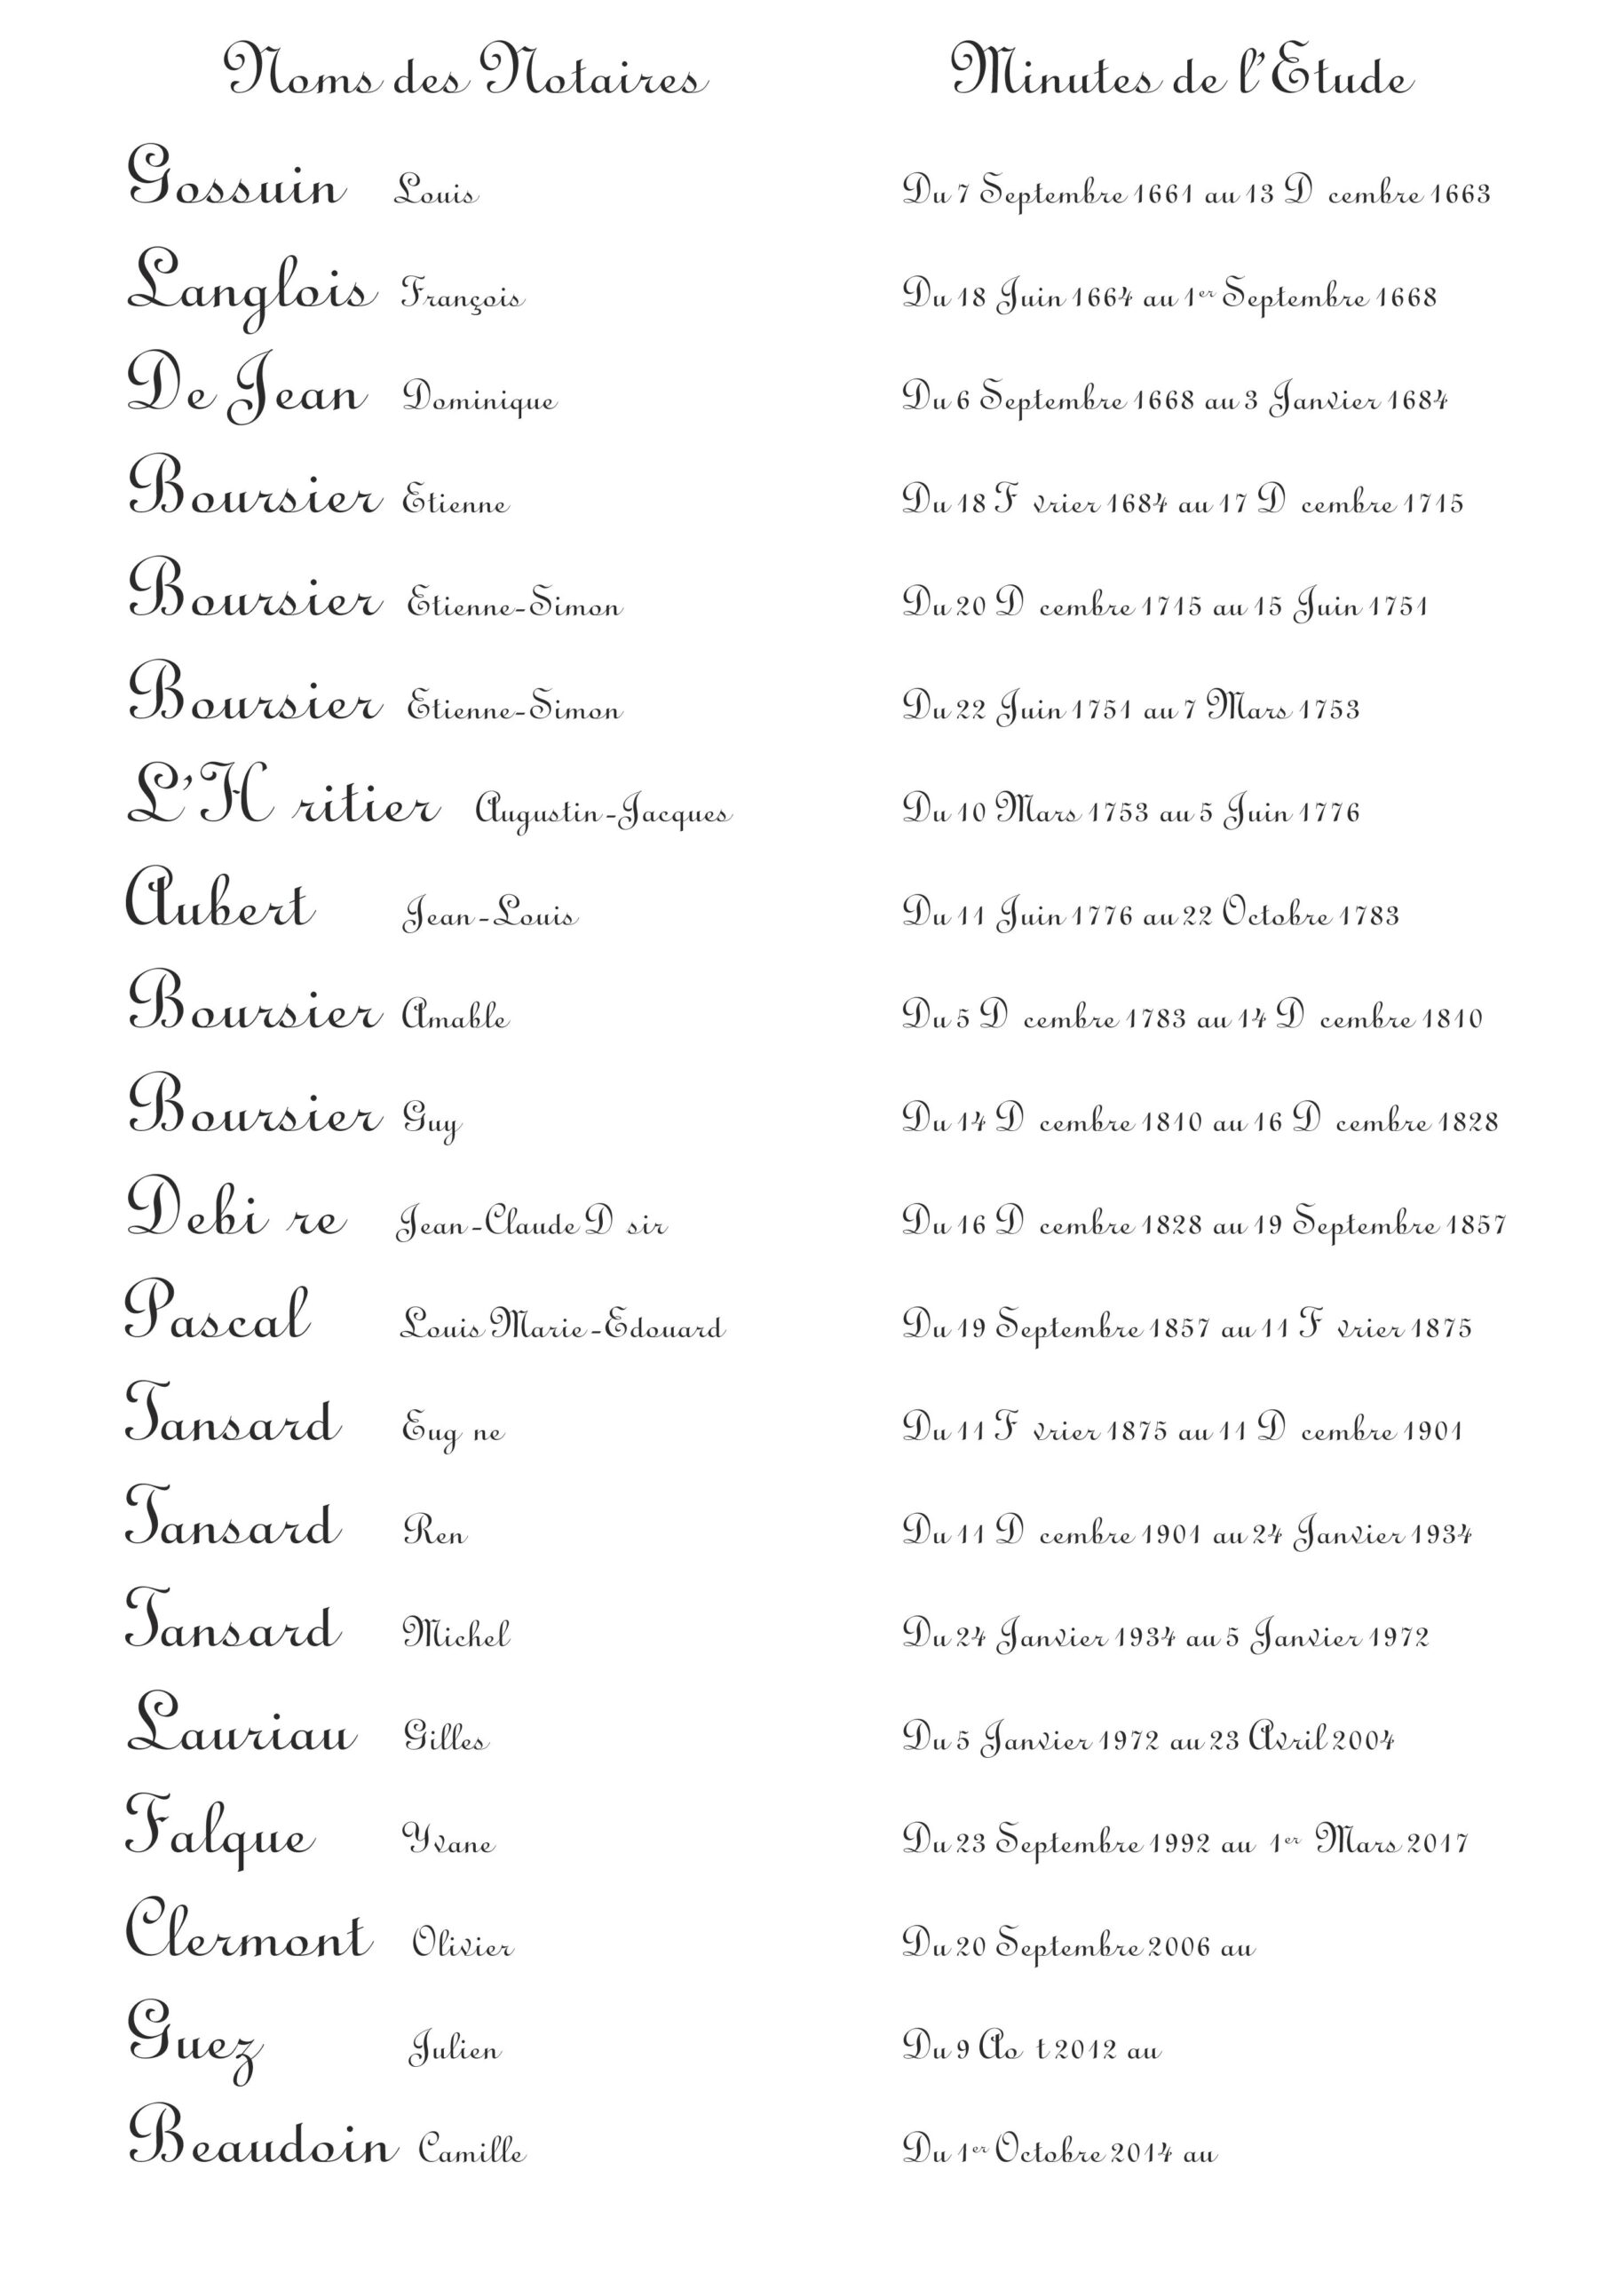 Noms des Notaires Minutes de l'Etude
Gossuin Louis Du 7 Septembre 1661 au 13 D cembre 1663
Langlois François Du 18 Juin 1664 au 1er Septembre 1668
De Jean Dominique Du 6 Septembre 1668 au 3 Janvier 1684
Boursier Etienne Du 18 F vrier 1684 au 17 D cembre 1715
Boursier Etienne-Simon Du 20 D cembre 1715 au 15 Juin 1751
Boursier Etienne-Simon Du 22 Juin 1751 au 7 Mars 1753
L'H ritier Augustin-Jacques Du 10 Mars 1753 au 5 Juin 1776
Aubert Jean-Louis Du 11 Juin 1776 au 22 Octobre 1783
Boursier Amable Du 5 D cembre 1783 au 14 D cembre 1810
Boursier Guy Du 14 D cembre 1810 au 16 D cembre 1828
Debi re Jean-Claude D sir Du 16 D cembre 1828 au 19 Septembre 1857
Pascal Louis Marie-Edouard Du 19 Septembre 1857 au 11 F vrier 1875
Tansard Eug ne Du 11 F vrier 1875 au 11 D cembre 1901
Tansard Ren Du 11 D cembre 1901 au 24 Janvier 1934
Tansard Michel Du 24 Janvier 1934 au 5 Janvier 1972
Lauriau Gilles Du 5 Janvier 1972 au 23 Avril 2004
Falque Yvane Du 23 Septembre 1992 au 1er Mars 2017
Clermont Olivier Du 20 Septembre 2006 au
Guez Julien Du 9 Ao t 2012 au
Beaudoin Camille Du 1er Octobre 2014 au